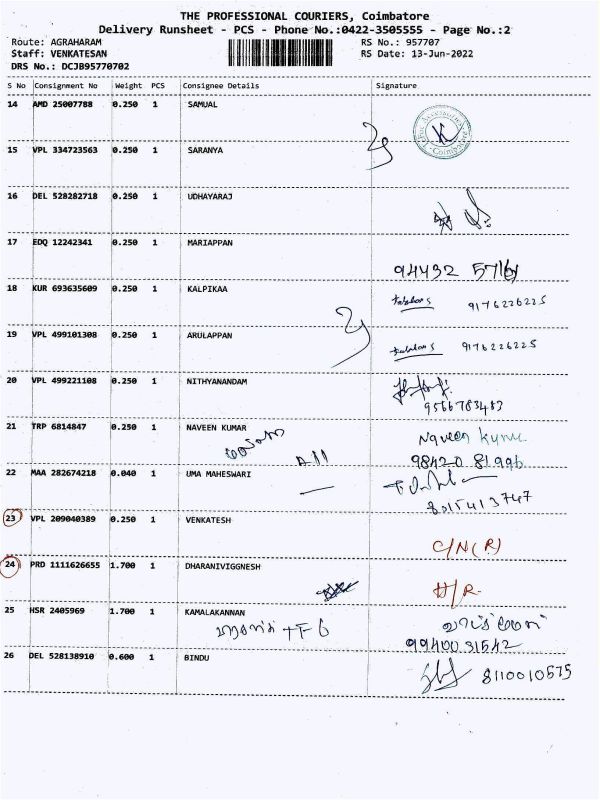 THE PROFESSIONAL COURIERS, Coimbatore
Delivery Runsheet - PCS - Phone No.:0422-3505555 - Page No.:2
Route: AGRAHARAM RS No.: 957707
Staff: VENKATESAN RS Date: 13-Jun-2022
DRS No.: DCJB95770702
S No Consignment No Weight PCS Consignee Details Signature
14 AMD 25007788 0.250 1 SAMUAL
15 VPL 334723563 0.250 1 SARANYA
16 DEL 528282718 0.250 1 UDHAYARAJ
17 EDQ 12242341 0.250 1 MARIAPPAN
94432
18 KUR 693635609 0.250 1 KALPIKAA 9176226225
19 VPL 499101308 0.250 1 ARULAPPAN 9176226225
20 VPL 499221108 0.250 1 NITHYANANDAM
9566783483
21 TRP 6814847 0.250 1 NAVEEN KUMAR Naveen
98420 81996
22 MAA 282674218 0.040 1 UMA MAHESWARI
8015413747
23 VPL 209040389 0.250 1 VENKATESH
C/N(R)
24 PRD 1111626655 1.700 1 DHARANIVIGGNESH
H/R
25 HSR 2405969 1.700 1 KAMALAKANNAN
9940031542
26 DEL 528138910 0.600 1 BINDU 8110010575